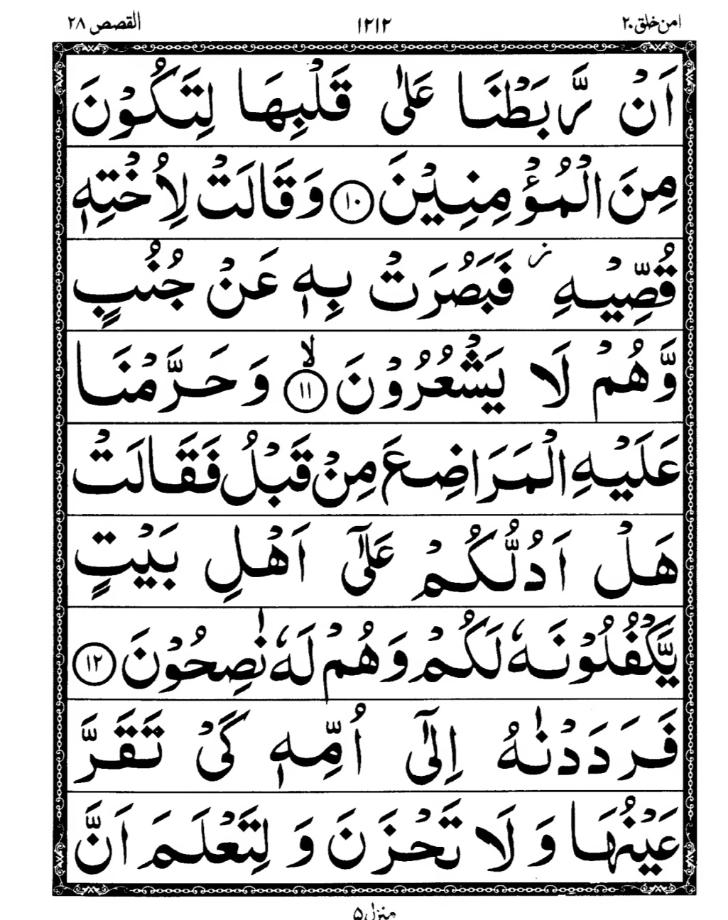 امن خلق ۲۰ ۱۲۱۲ القصص ۲۸
اَنْ رَّبَطْنَا عَلٰى قَلْبِهَا لِتَكُوْنَ
مِنَ الْمُؤْمِنِيْنَ ۝۱۰ وَقَالَتْ لِاُخْتِهٖ
قُصِّيْهِ ز فَبَصُرَتْ بِهٖ عَنْ جُنُبٍ
وَّهُمْ لَا يَشْعُرُوْنَ ۙ۝۱۱ وَحَرَّمْنَا
عَلَيْهِ الْمَرَاضِعَ مِنْ قَبْلُ فَقَالَتْ
هَلْ اَدُلُّكُمْ عَلٰٓى اَهْلِ بَيْتٍ
يَّكْفُلُوْنَهٗ لَكُمْ وَهُمْ لَهٗ نٰصِحُوْنَ ۝۱۲
فَرَدَدْنٰهُ اِلٰٓى اُمِّهٖ كَيْ تَقَرَّ
عَيْنُهَا وَلَا تَحْزَنَ وَلِتَعْلَمَ اَنَّ
منزل ۵